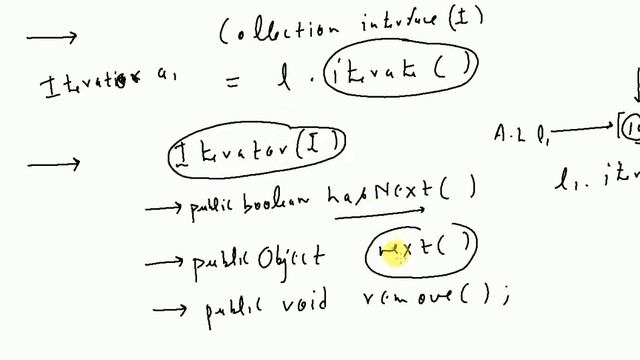 → Collection interface (I)
Iterator a1 = l . iterate ( )
→ Iterator (I)
A.L l1 → [10
l1. iter
→ public boolean hasNext ( )
→ public Object next ( )
→ public void remove ( ) ;